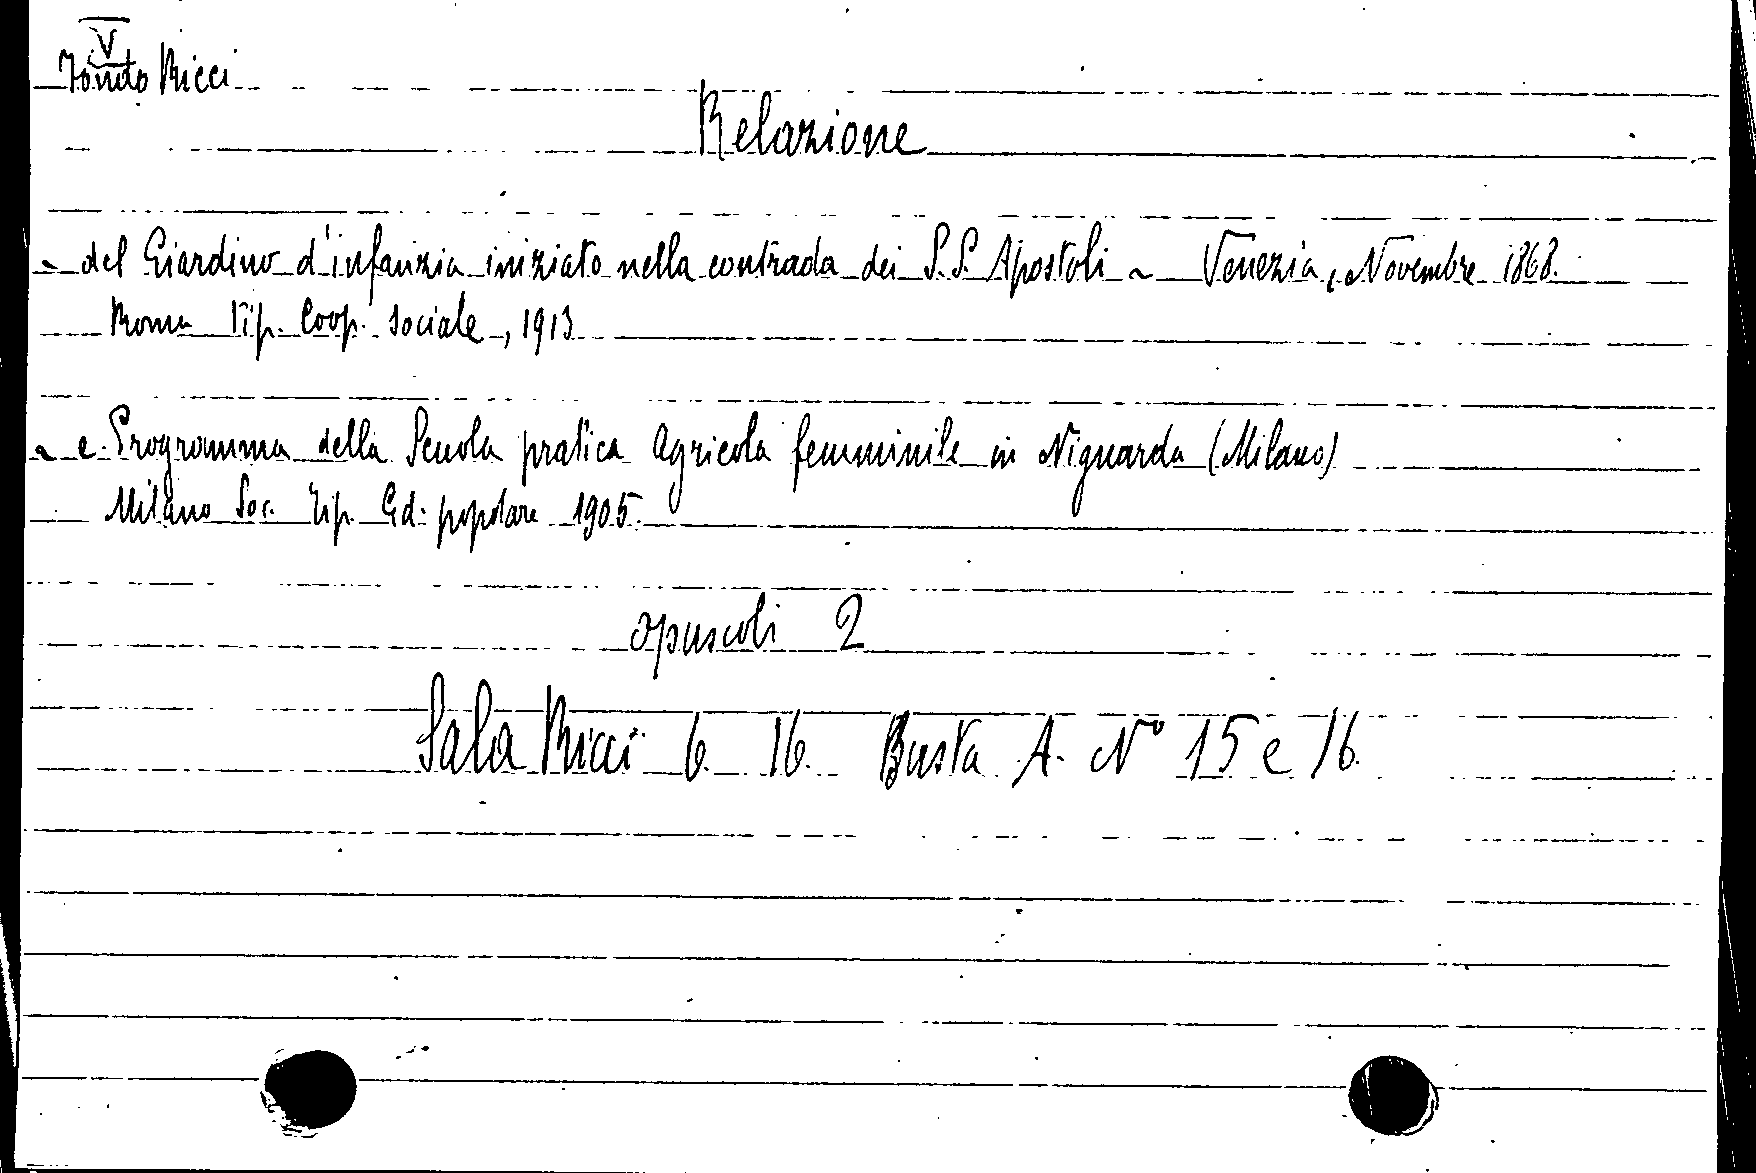 V
Fondo Ricci
Relazione
~ del Giardino d'infanzia iniziato nella contrada dei S.S. Apostoli ~ Venezia, Novembre 1868.
Roma Tip. Coop. Sociale, 1913
~ e Programma della Scuola pratica Agricola femminile in Niguarda (Milano)
Milano Soc. Tip. Ed. popolare 1905.
opuscoli 2
Sala Ricci 6. 16. Busta A. N° 15 e 16.